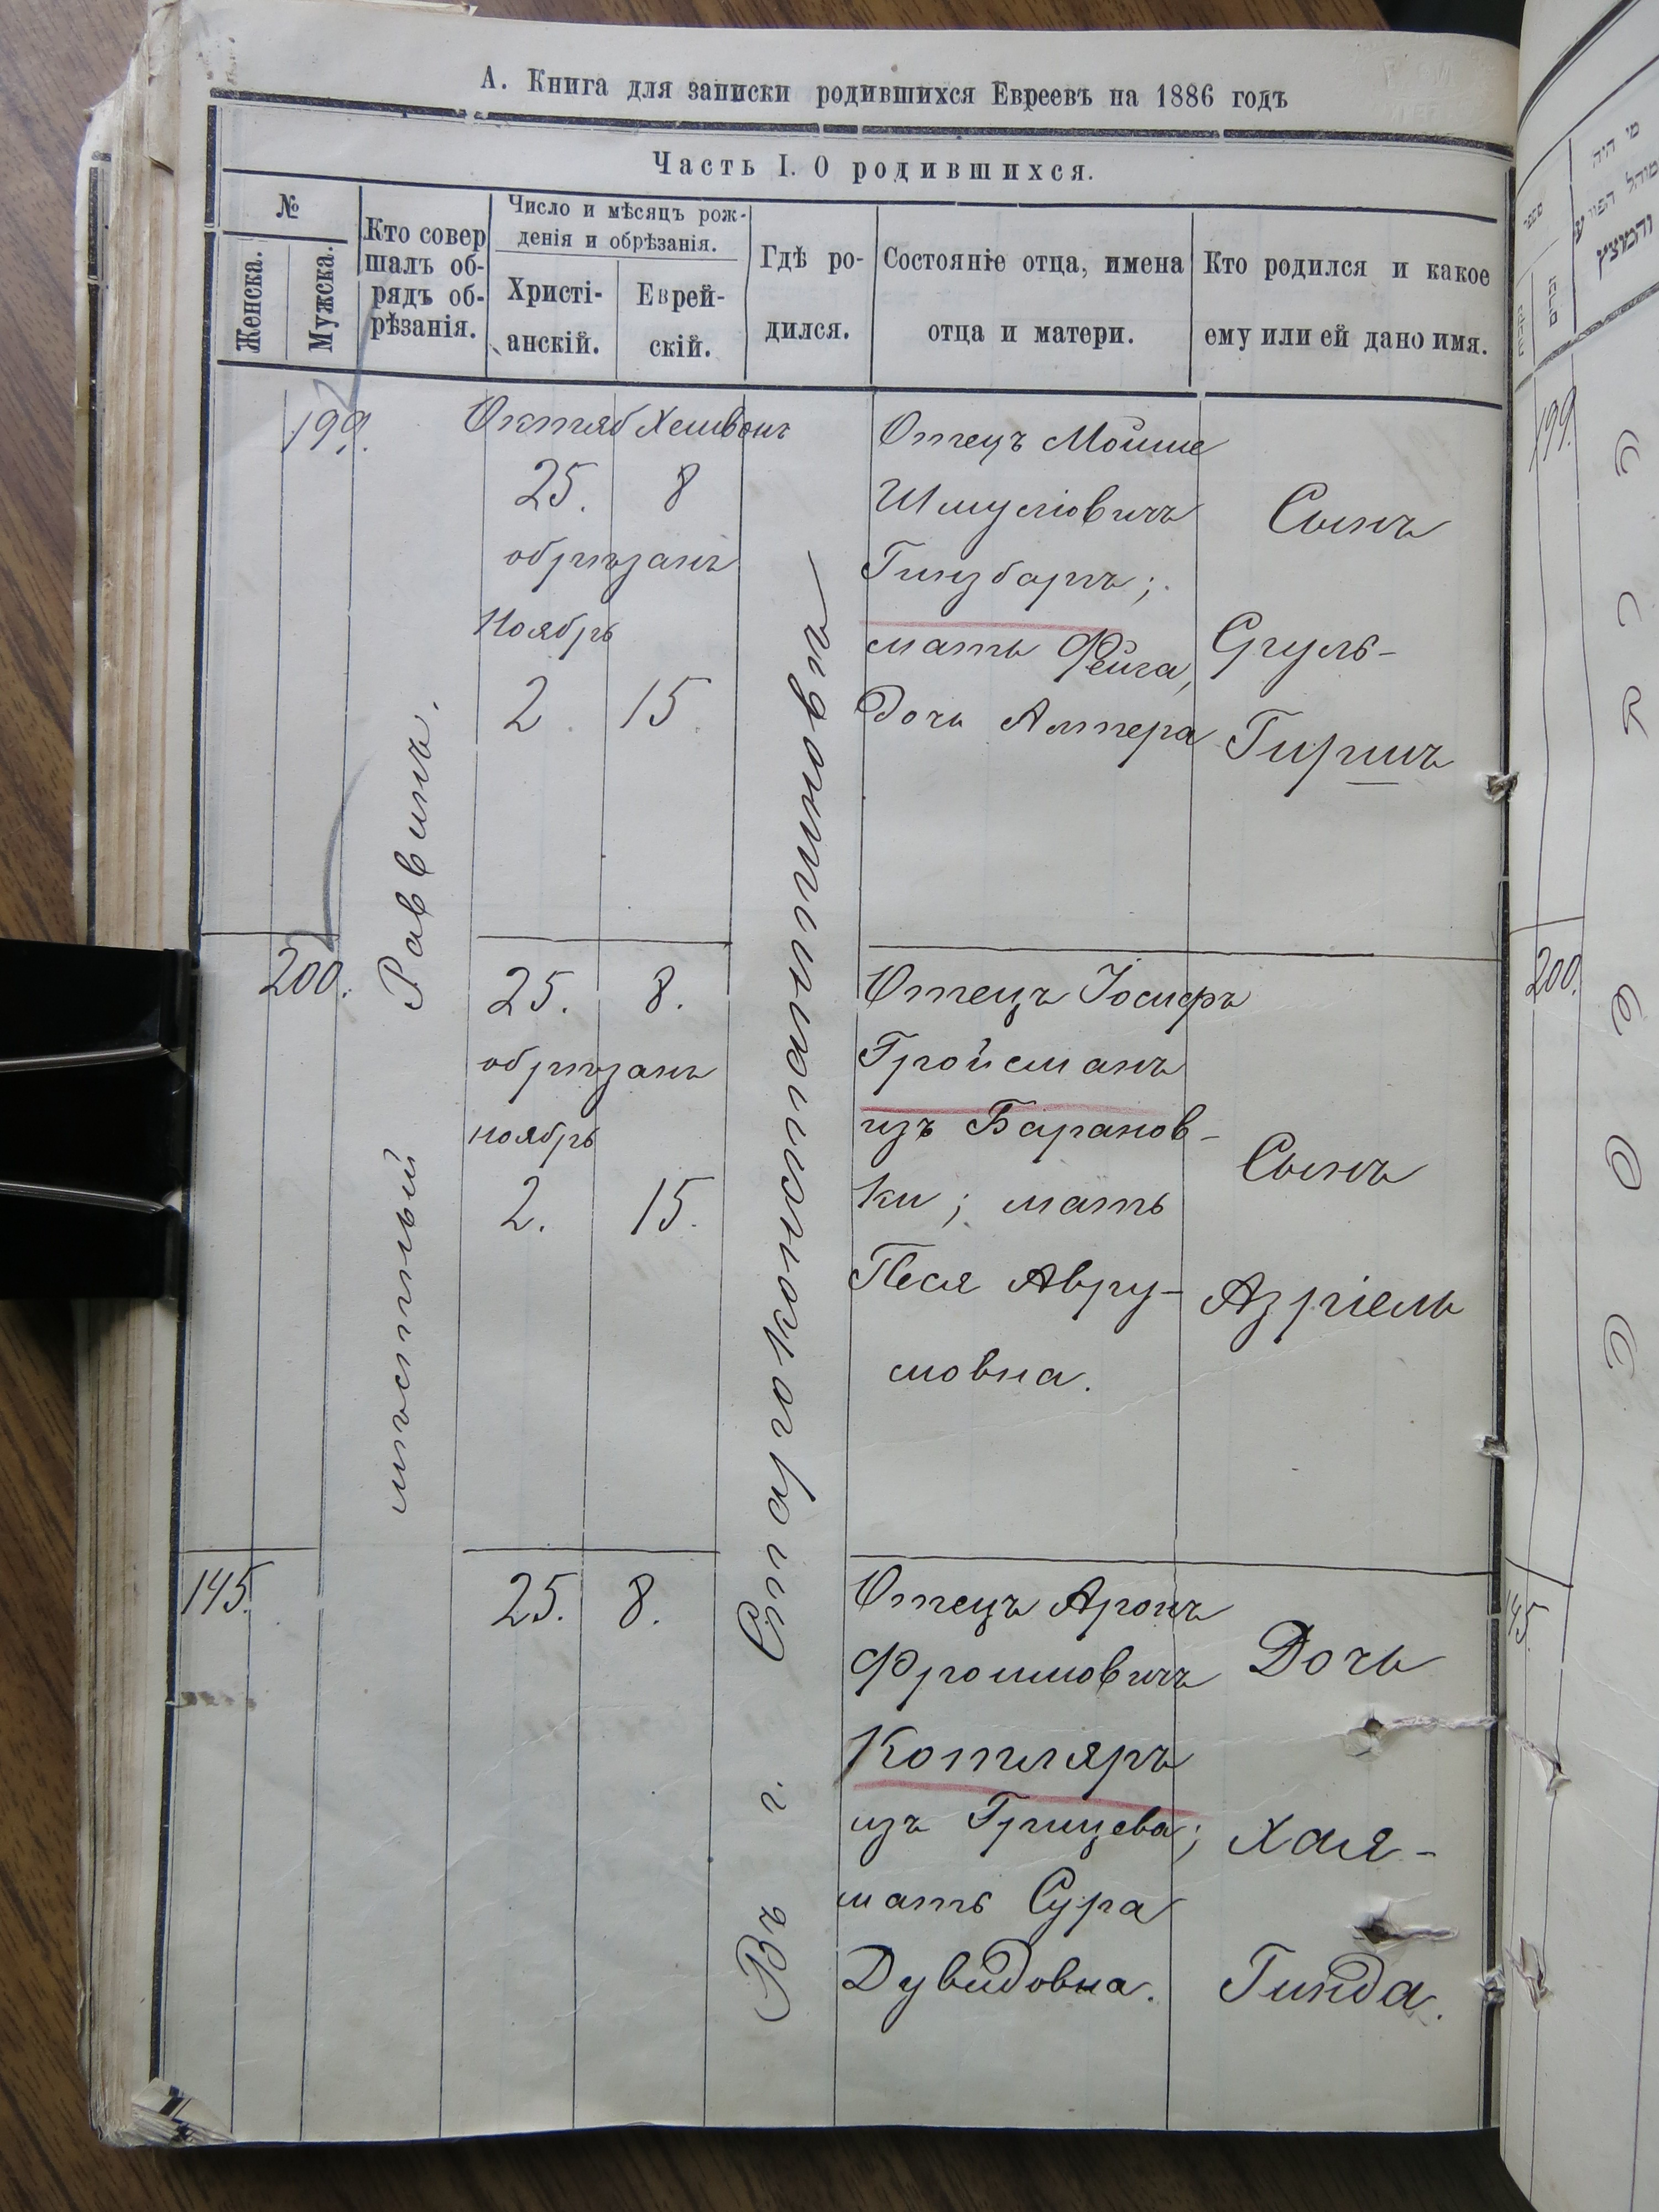 А. Книга для записки родившихся Евреевъ на 1886 годъ
Часть I. О родившихся.
№
Женска.
Мужска.
Кто совер
шалъ об-
рядъ об-
рѣзанія.
Число и мѣсяцъ рож-
денія и обрѣзанія.
Христі-
анскій.
Еврей-
скій.
Гдѣ ро-
дился.
Состояніе отца, имена
отца и матери.
Кто родился и какое
ему или ей дано имя.
199.
мѣстный Раввинъ.
Октяб Хешвонъ
25. 8
обрѣзанъ
Ноябрь
2. 15.
Въ г. Староконстантиновѣ
Отецъ Мойше
Шмуліовичъ
Гинзбаргъ;
мать Фейга,
Дочь Алтера
Сынъ
Сруль-
Гиршъ
200.
25. 8.
обрѣзанъ
ноябрь
2. 15.
Отецъ Іосифъ
Гройсманъ
изъ Баранов-
ки; мать
Песя Авру-
мовна.
Сынъ
Азріель
145.
25. 8.
Отецъ Аронъ
Фроимовичъ
Котляръ
изъ Грицева;
мать Сура
Дувидовна.
Дочь
Хая-
Гинда.
מי היה
מוהל הפו״ע
והמוצץ
199.
200.
145.